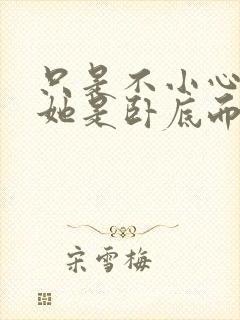 只是不小心
她是卧底而
宋雪梅